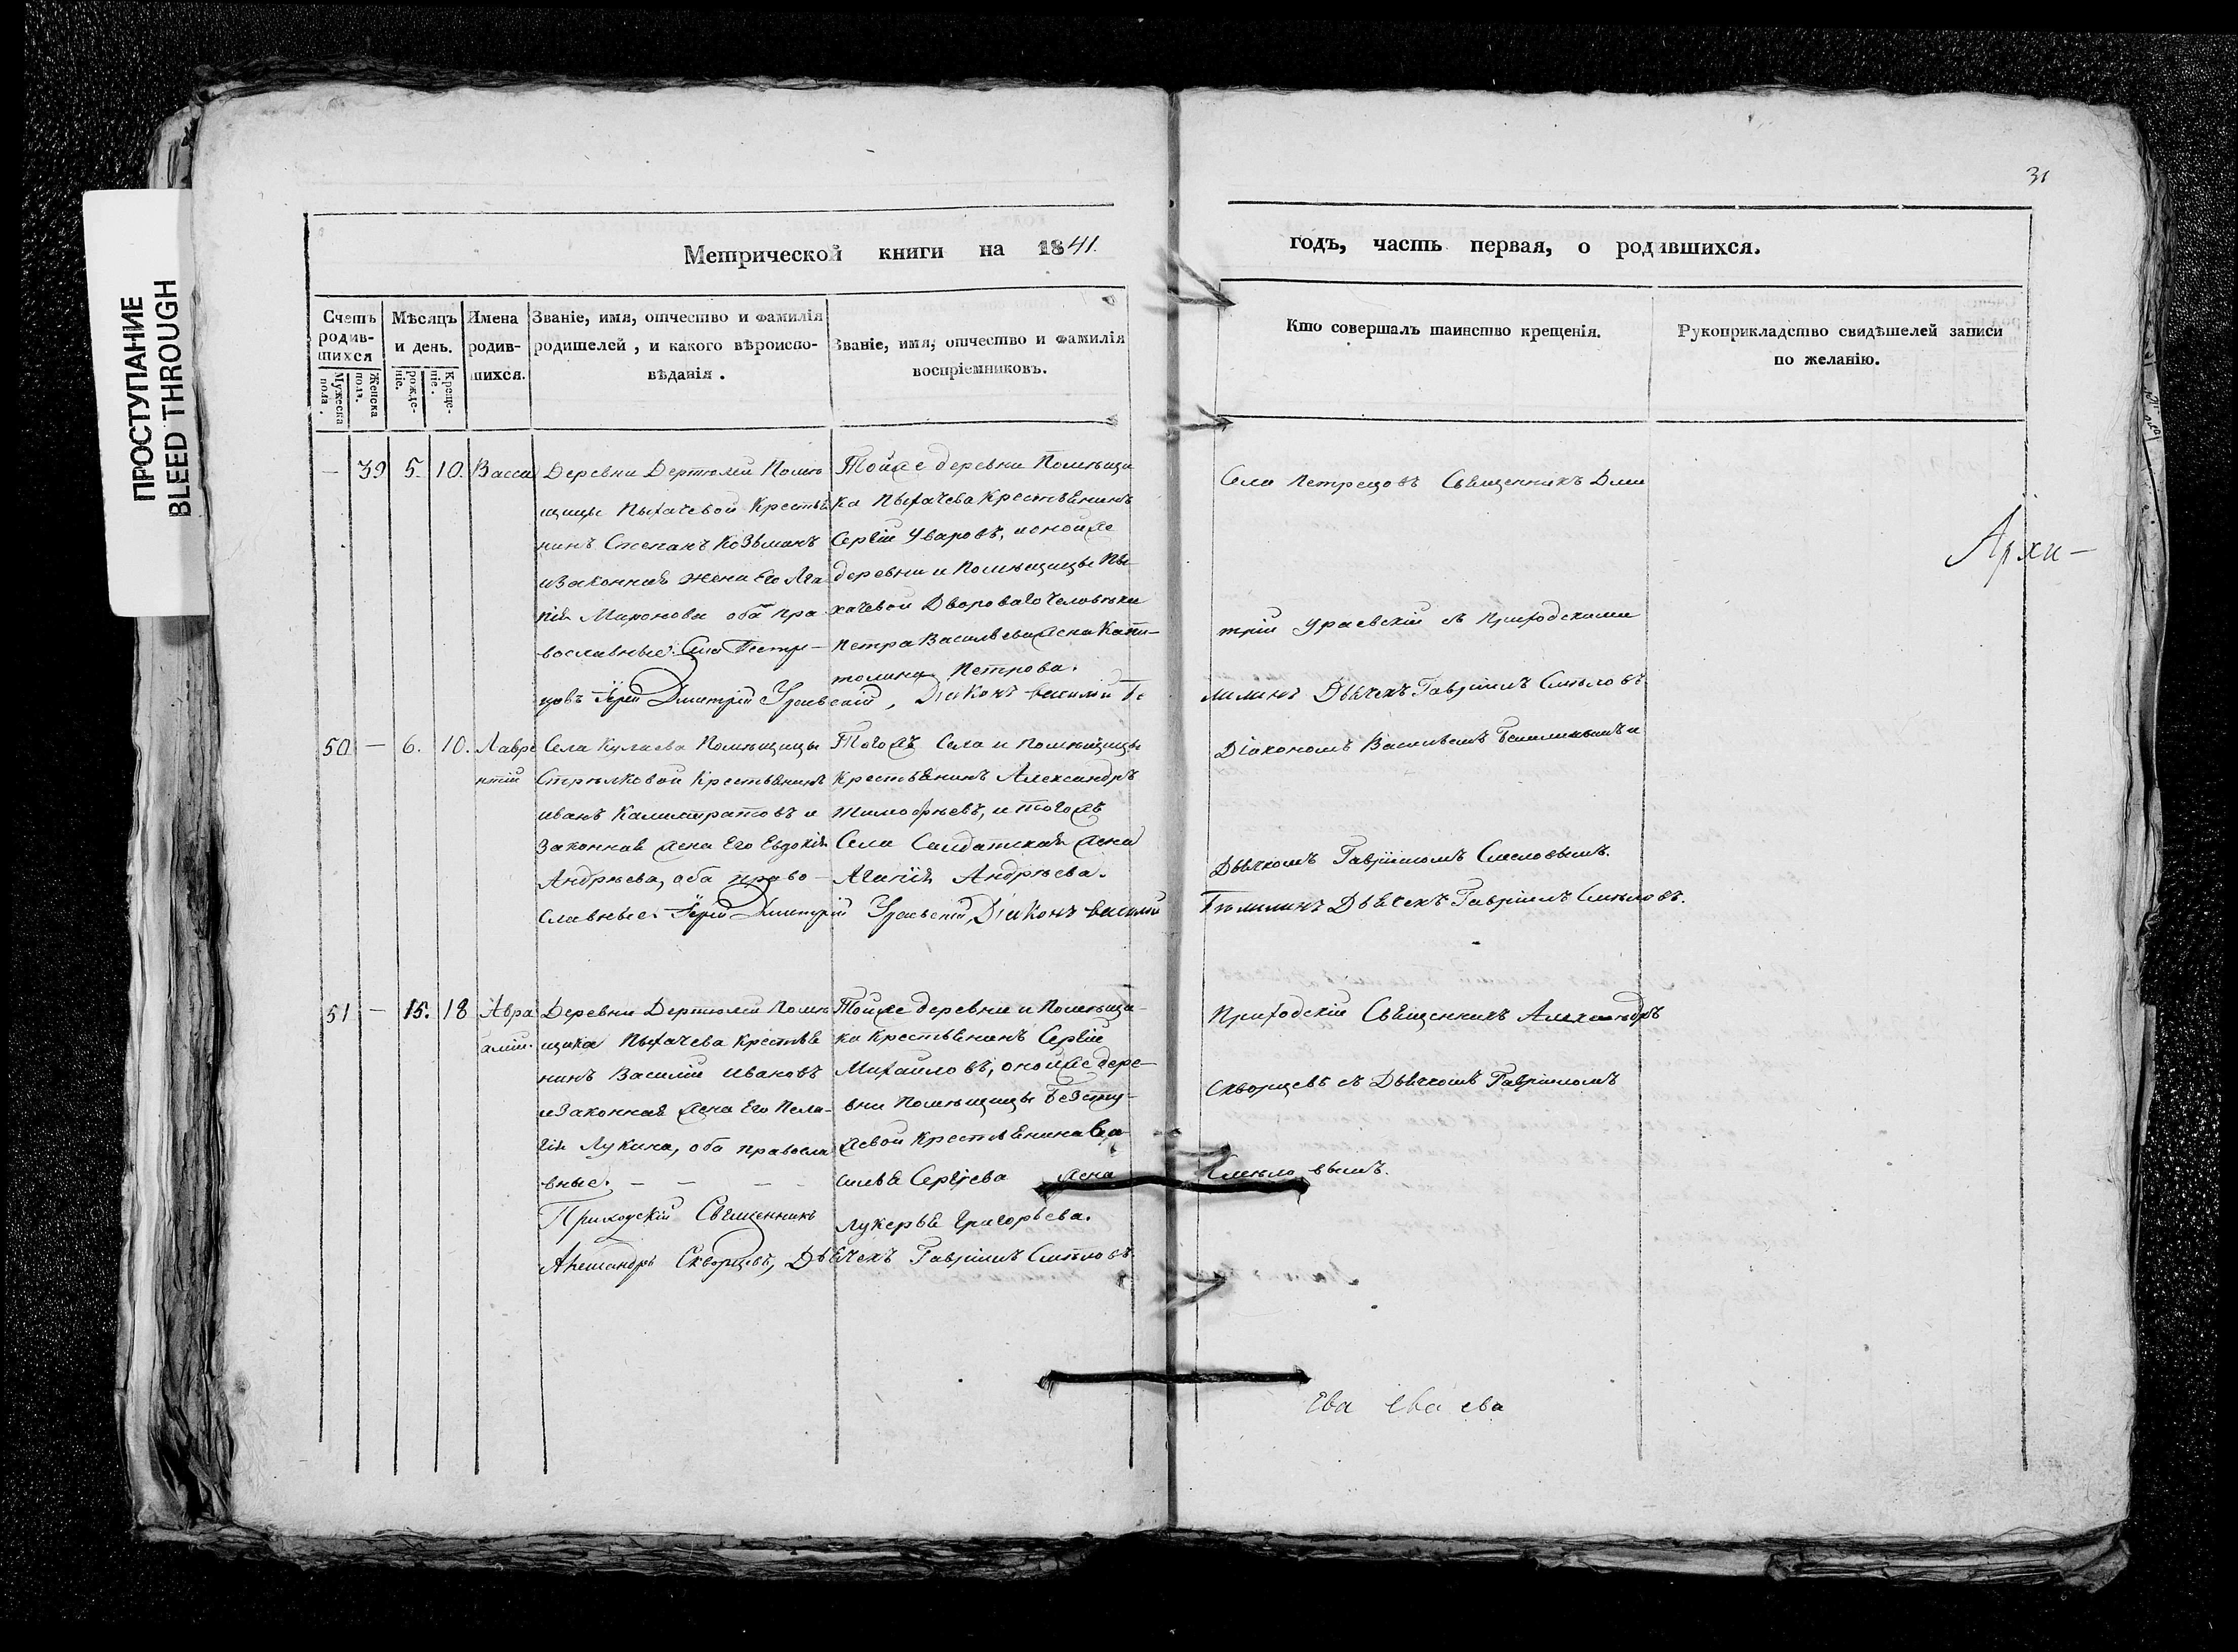 ПРОСТУПАНИЕ
BLEED THROUGH
31
Метрической книги на 1841.
годъ, часть первая, о родившихся.
Счетъ родив-шихся
Мужеска пола.
Женска пола.
Мѣсяцъ и день.
рожде-ніе.
Креще-ніе.
Имена родив-шихся.
Званіе, имя, отчество и фамилія
родителей, и какого вѣроиспо-
вѣданія.
Званіе, имя, отчество и фамилія
воспріемниковъ.
Кто совершалъ таинство крещенія.
Рукоприкладство свидѣтелей записи
по желанію.
— 39 5. 10. Васса
Деревни Дертюлей Помѣ
щицы Пыхачевой Крестья
нинъ Степанъ Козьминъ
и Законная жена Его Ага
пія Миронова оба пра
вославные. Села Петре-
цовъ Іерей Дмитрій Ураевскій, Діаконъ Василий
Тойже деревни Помѣщи
ка Пыхачева Крестьянинъ
Сергій Уваровъ, и онойже
деревни и Помѣщицы Пы-
хачевой Двороваго Человѣка
Петра Васильева жена Капи-
толина Петрова.
Села Петрецовъ Священникъ Дми
трій Ураевскій съ Приходскими
Дьячекъ Гавріилъ Смѣловъ
Діакономъ Васильемъ
Дьячкомъ Гавріиломъ Смеловымъ.
Архи-
50 — 6. 10. Лавре
нтій
Села Кулаева Помѣщицы
Стрѣлковой Крестьянинъ
Иванъ Калистратовъ и
Законная жена Его Евдокія
Андрѣева, оба право-
славные. Іерей Дмитрій Ураевскій, Діаконъ Василий
Тогожъ Села и Помѣщицы
Крестьянинъ Александръ
Тимофѣевъ, и тогожъ
Села Салдатская жена
Агапія Андрѣева.
Дьячекъ Гавріилъ Смѣловъ.
51 — 15. 18 Авра
амій.
Деревни Дертюлей Помѣ
щика Пыхачева Крестья
нинъ Василій Ивановъ
и Законная жена Его Пела-
гія Лукина, оба правосла
вные. — — — —
Приходскій Священникъ
Александръ Скворцовъ, Дьячекъ Гавріилъ Смѣловъ.
Тойже деревни и Помѣщи-
ка Крестьянинъ Сергій
Михаиловъ, онойже дере-
вни Помѣщицы Безсту-
жевой Крестьянина Ва
силья Сергѣева жена
Лукерья Григорьева.
Приходскій Священникъ Александръ
Скворцевъ съ Дьячкомъ Гавріиломъ
Смѣловымъ.
Ева ева ева